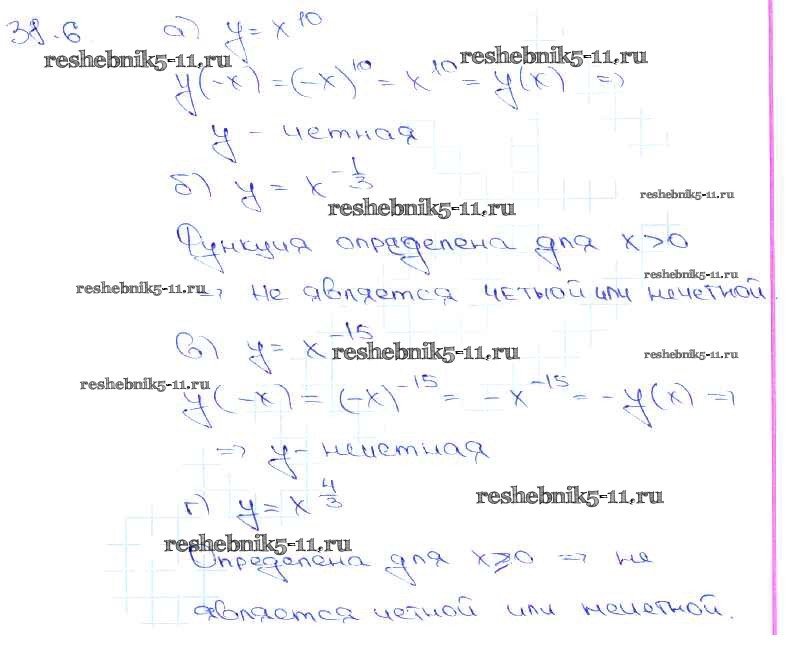 38.6 а) y = x^10
reshebnik5-11.ru reshebnik5-11.ru
y(-x) = (-x)^10 = x^10 = y(x) =>
y - четная
б) y = x^(-1/3)
reshebnik5-11.ru
reshebnik5-11.ru
Функция определена для x>0
reshebnik5-11.ru
reshebnik5-11.ru => не является четной или нечетной.
в) y = x^-15
reshebnik5-11.ru reshebnik5-11.ru
reshebnik5-11.ru
y(-x) = (-x)^-15 = -x^-15 = -y(x) =>
=> y - нечетная
г) y = x^(4/3)
reshebnik5-11.ru
reshebnik5-11.ru
Определена для x⩾0 => не
является четной или нечетной.